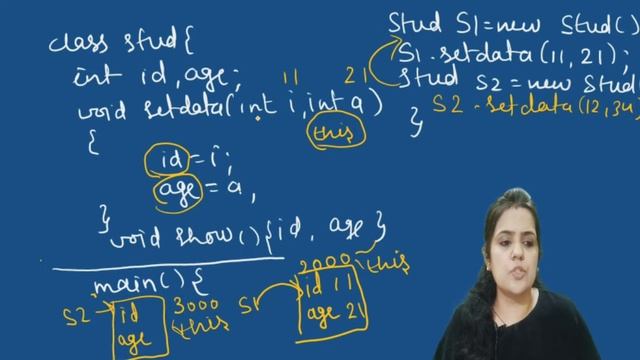 class Stud{
int id, age;
11 21
void setdata(int i, int a)
{ this
id = i;
age = a,
}
void show(){id, age}
main(){
S2 id age
3000
this
S1
2000 this
id 11
age 21
Stud S1 = new Stud()
S1.setdata(11, 21);
Stud S2 = new Stud(
S2.setdata(12,34)
}